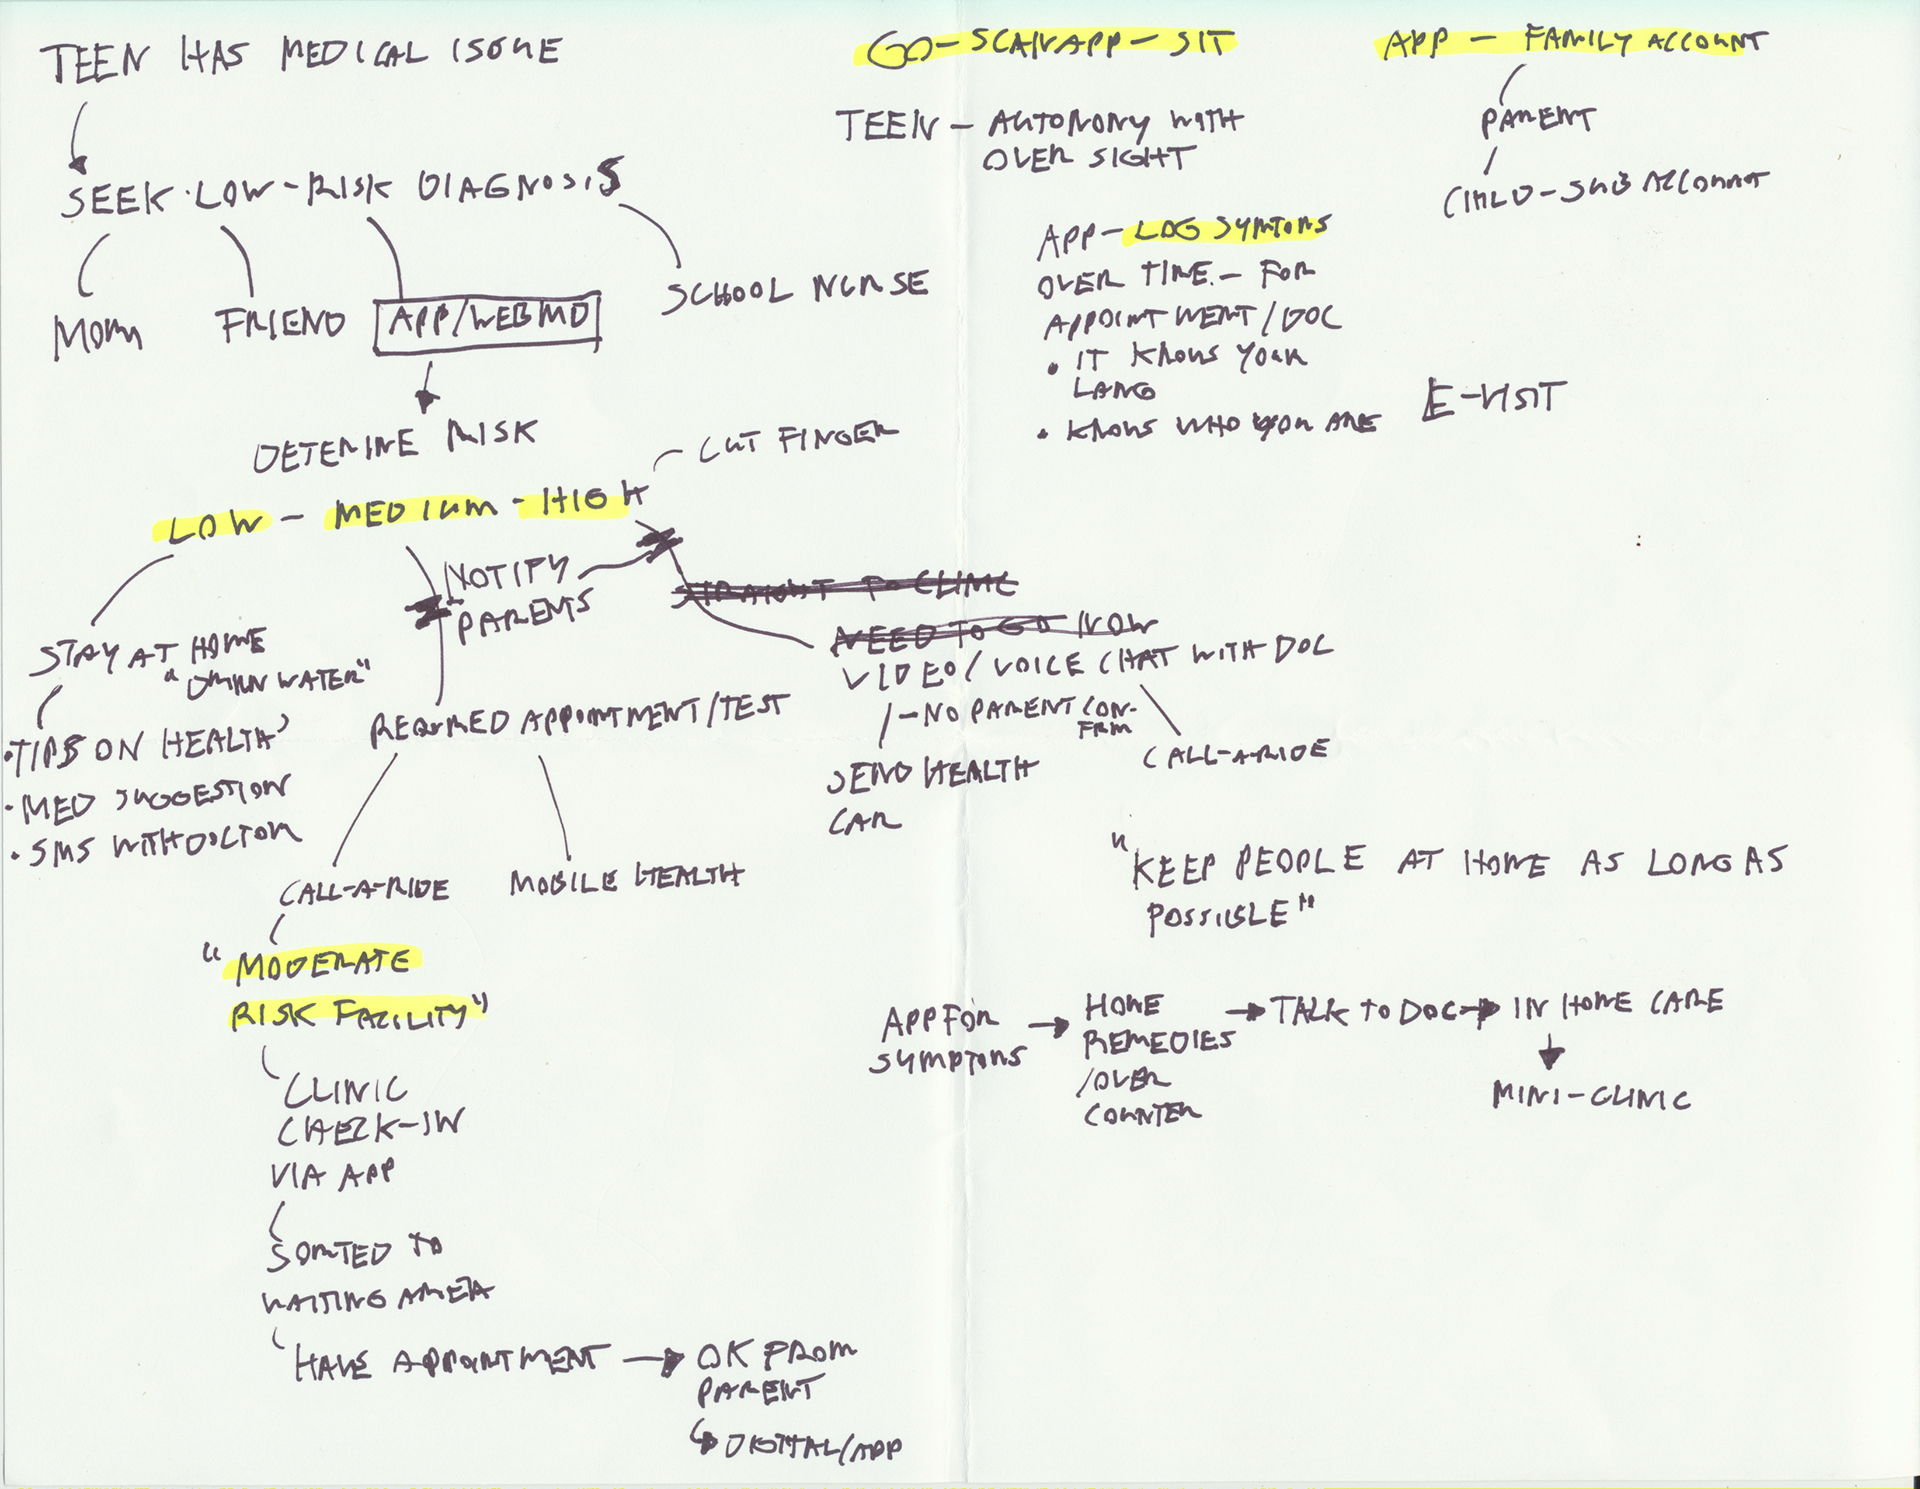 TEEN HAS MEDICAL ISSUE
SEEK LOW-RISK DIAGNOSIS
MOM
FRIEND
APP/WEBMD
SCHOOL NURSE
DETERMINE RISK
CUT FINGER
LOW - MEDIUM - HIGH
NOTIFY
PARENTS
STRAIGHT TO CLINIC
NEED TO GO NOW
VIDEO/VOICE CHAT WITH DOC
-NO PARENT CON-
FRM
SEND HEALTH
CAR
CALL-A-RIDE
STAY AT HOME
"DRINK WATER"
• TIPS ON HEALTH
• MED SUGGESTION
• SMS WITH DOCTOR
REQUIRED APPOINTMENT/TEST
CALL-A-RIDE
MOBILE HEALTH
"MODERATE
RISK FACILITY"
CLINIC
CHECK-IN
VIA APP
SORTED TO
WAITING AREA
HAVE APPOINTMENT
OK FROM
PARENT
DIGITAL/APP
GO-SCAN APP-SIT
TEEN - AUTONOMY WITH
OVER SIGHT
APP - LOG SYMTOMS
OVER TIME - FOR
APPOINTMENT/DOC
• IT KNOWS YOUR
LANG
• KNOWS WHO YOU ARE
APP - FAMILY ACCOUNT
PARENT
CHILD-SUB ACCOUNT
E-VISIT
"KEEP PEOPLE AT HOME AS LONG AS
POSSIBLE"
APP FOR
SYMPTOMS
HOME
REMEDIES
/OVER
COUNTER
TALK TO DOC
IN HOME CARE
MINI-CLINIC